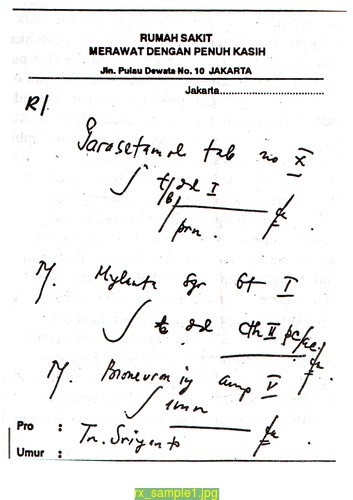 RUMAH SAKIT
MERAWAT DENGAN PENUH KASIH
Jln. Pulau Dewata No. 10 JAKARTA
Jakarta..............................
R/.
Parasetamol tab no X
∫ dd I
prn.
R/. Mylanta Syr fl I
∫ dd cth II pc/ac
R/. amp V
∫ imm
Pro : Tn. Sriyanto
Umur :
rx_sample1.jpg